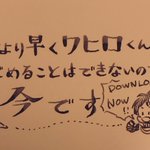 より早くワヒロくん
めることはできないの
今です
DOWNLO
NOW!!